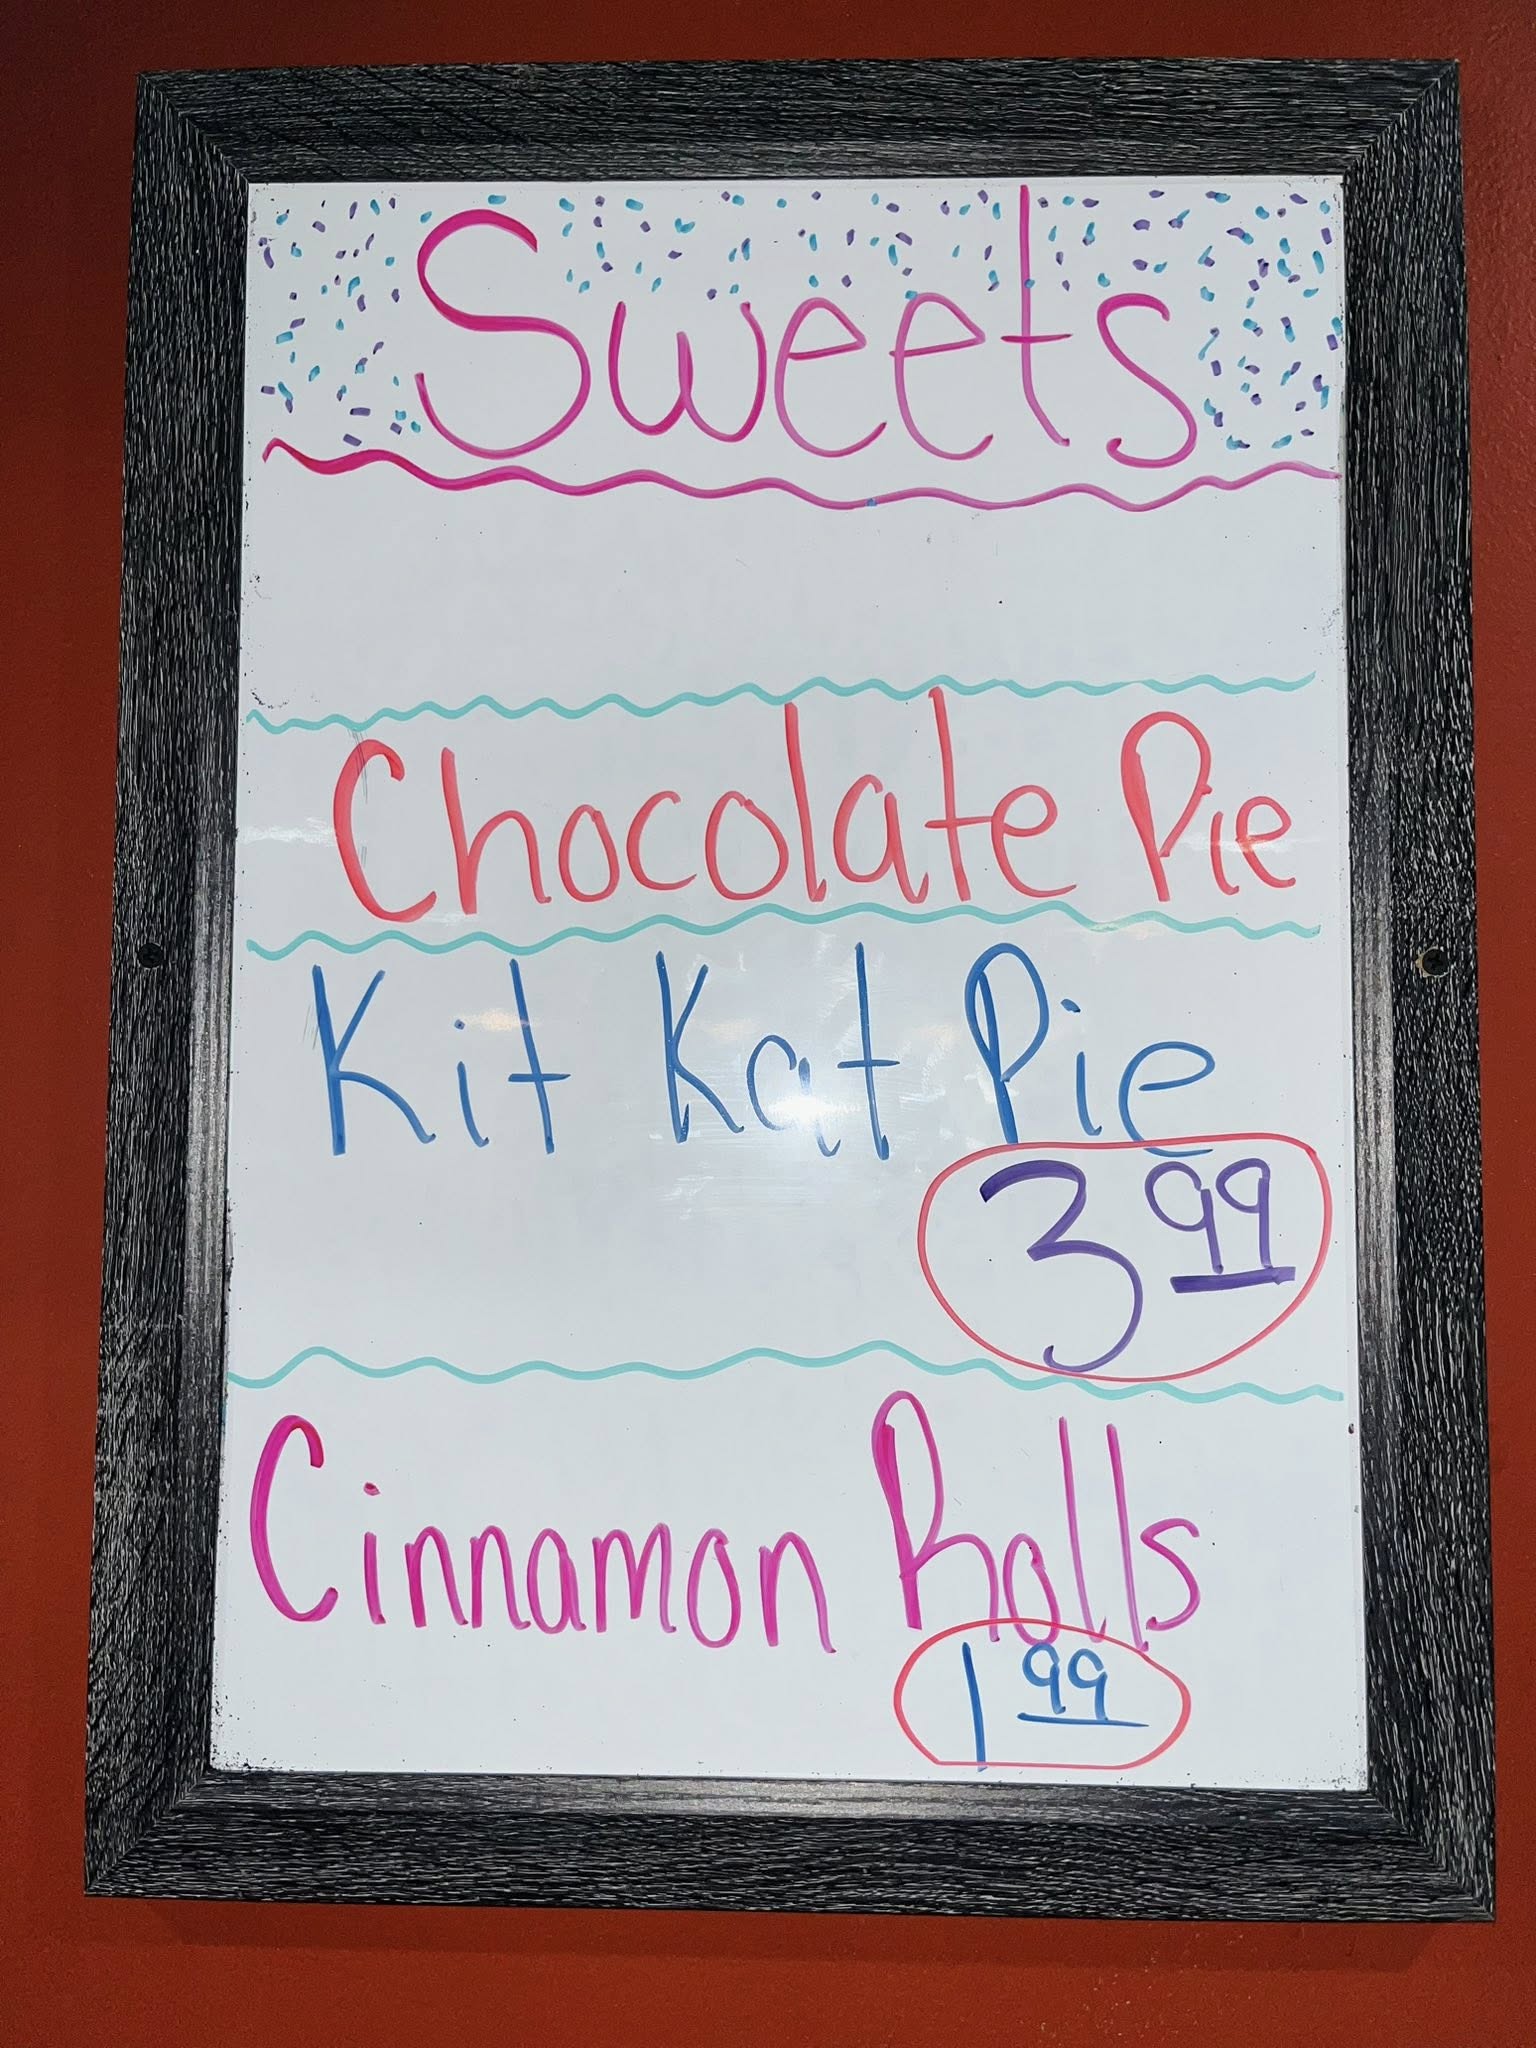 Sweets
Chocolate Pie
Kit Kat Pie
3 99
Cinnamon Rolls
1 99